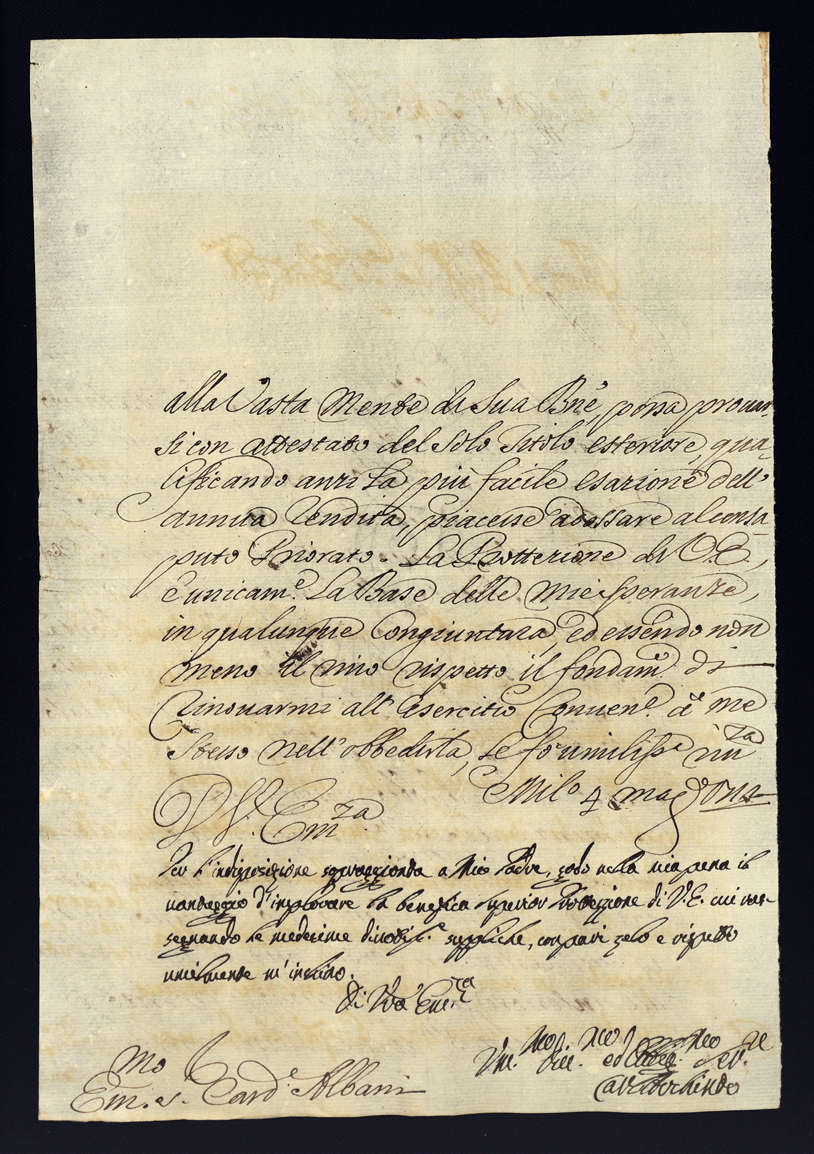 alla Vasta Mente di Sua Bne possa provar
si con attestato del Solo Titolo esteriore, qua=
lificando anzi La più facile esazione dell'
annua Rendita, piacesse adossare al consa
puto Priorato. La Protterione di V.E.,
è unicam.e La Base delle mie speranze,
in qualunque Congiuntura, ed essendo non
meno il mio rispetto il fondam.o di
Rinovarmi all' esercitio Conuen.e à me
stesso nell'obbedirla, le fo umiliss.a
D V. Em.za Mil.o 4 mag.o
Per l'indisposizione sopraggionta a Mio Padre, godo nella mia pena il
vantaggio d'implorare la benefica Protezzione di V.E. cui ras=
segnando le medesime suppliche, con pari zelo e rispetto
umilmente m'inchino.
Di V.ra Em.za
Em. S. Card.e Albani